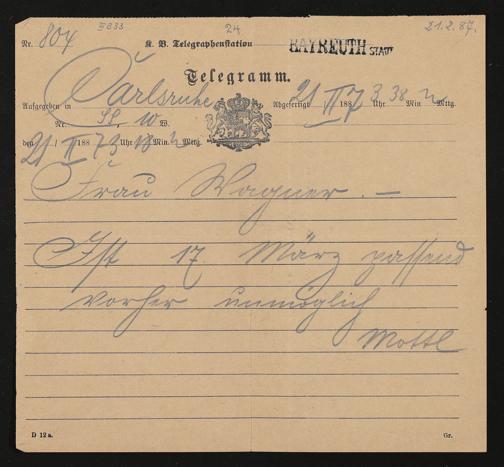 24 21.2.87.
Nr. 804 K. B. Telegraphenstation BAYREUTH STADT
Telegramm.
Aufgegeben in Carlsruhe Abgefertigt 21 II 1887 3 Uhr 38 Min. n Mttg.
Nr. W. 10 W.
den 21 II 1887 3 Uhr Min. n Mttg.
Frau Wagner. —
Ist 17 März passend
vorher unmöglich
Mottl
D 12 a. Gr.